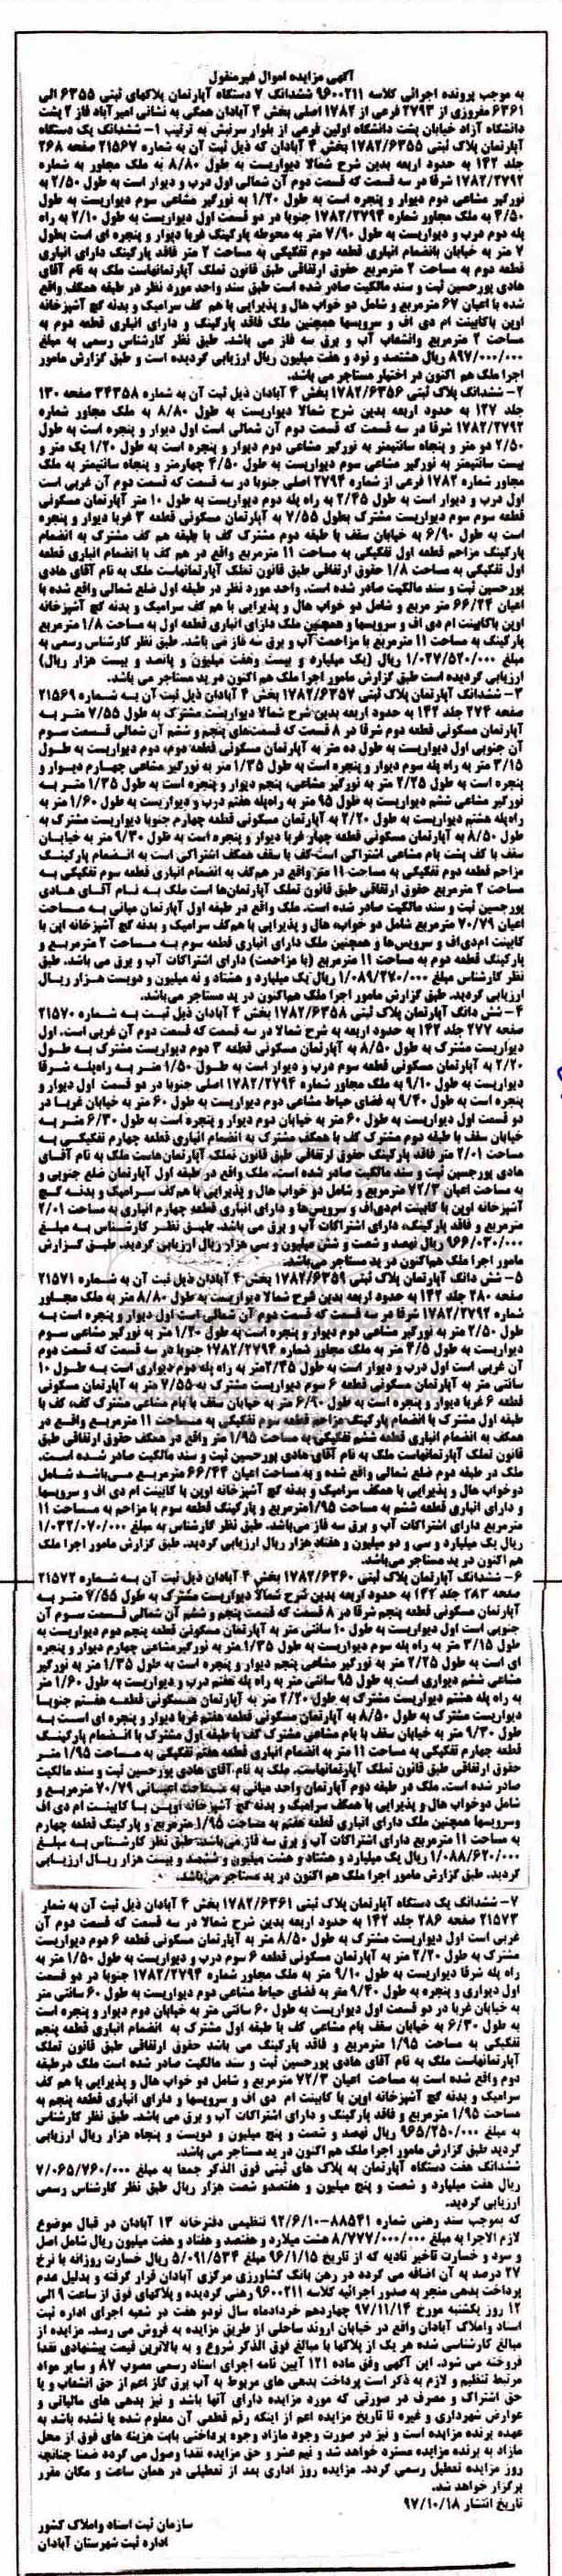 آگهی مزایده اموال غیرمنقول
به موجب پرونده اجرائی کلاسه ۹۶۰۰۲۱۱ ششدانگ ۷ دستگاه آپارتمان پلاکهای ثبتی ۶۳۵۵ الی
۶۳۶۱ مفروزی از ۲۷۹۳ فرعی از ۱۷۸۲ اصلی بخش ۴ آبادان همگی به نشانی امیرآباد فاز ۲ پشت
دانشگاه آزاد خیابان پشت دانشگاه اولین فرعی از بلوار سرنبش به ترتیب ۱- ششدانگ یک دستگاه
آپارتمان پلاک ثبتی ۱۷۸۲/۶۳۵۵ بخش ۴ آبادان که ذیل ثبت آن به شماره ۲۱۵۶۷ صفحه ۲۶۸
جلد ۱۴۲ به حدود اربعه بدین شرح شمالا دیواریست به طول ۸/۸۰ به ملک مجاور به شماره
۱۷۸۲/۲۷۹۲ شرقا در سه قسمت که قسمت دوم آن شمالی اول درب و دیوار است به طول ۲/۵۰ به
نورگیر مشاعی دوم دیوار و پنجره است به طول ۱/۲۰ به نورگیر مشاعی سوم دیواریست به طول
۴/۵۰ به ملک مجاور شماره ۱۷۸۲/۲۷۹۴ جنوبا در دو قسمت اول دیواریست به طول ۲/۱۰ به راه
پله دوم درب و دیواریست به طول ۷/۹۰ متر به محوطه پارکینگ غربا دیوار و پنجره ای است بطول
۷ متر به خیابان بانضمام انباری قطعه دوم تفکیکی به مساحت ۲ متر فاقد پارکینگ دارای انباری
قطعه دوم به مساحت ۲ مترمربع حقوق ارتفاقی طبق قانون تملک آپارتمانهاست ملک به نام آقای
هادی پورحسین ثبت و سند مالکیت صادر شده است طبق سند واحد مورد نظر در طبقه همکف واقع
شده با اعیان ۶۷ مترمربع و شامل دو خواب هال و پذیرایی با هم کف سرامیک و بدنه گچ آشپزخانه
اوپن باکابینت ام دی اف و سرویسها همچنین ملک فاقد پارکینگ و دارای انباری قطعه دوم به
مساحت ۲ مترمربع وانشعاب آب و برق سه فاز می باشد. طبق نظر کارشناس رسمی به مبلغ
۸۹۷/۰۰۰/۰۰۰ ریال هشتصد و نود و هفت میلیون ریال ارزیابی گردیده است و طبق گزارش مامور
اجرا ملک هم اکنون در اختیار مستاجر می باشد.
۲- ششدانگ پلاک ثبتی ۱۷۸۲/۶۳۵۶ بخش ۴ آبادان ذیل ثبت آن به شماره ۳۴۳۵۸ صفحه ۱۳۰
جلد ۱۲۷ به حدود اربعه بدین شرح شمالا دیواریست به طول ۸/۸۰ به ملک مجاور شماره
۱۷۸۲/۲۷۹۲ شرقا در سه قسمت که قسمت دوم آن شمالی است اول دیوار و پنجره است به طول
۲/۵۰ دو متر و پنجاه سانتیمتر به نورگیر مشاعی دوم دیوار و پنجره است به طول ۱/۲۰ یک متر و
بیست سانتیمتر به نورگیر مشاعی سوم دیواریست به طول ۴/۵۰ چهارمتر و پنجاه سانتیمتر به ملک
مجاور شماره ۱۷۸۲ فرعی از شماره ۲۷۹۴ اصلی جنوبا در سه قسمت که قسمت دوم آن غربی است
اول درب و دیوار است به طول ۲/۴۵ به راه پله دوم دیواریست به طول ۱۰ متر آپارتمان مسکونی
قطعه سوم سوم دیواریست مشترک بطول ۷/۵۵ به آپارتمان مسکونی قطعه ۳ غربا دیوار و پنجره
است به طول ۶/۹۰ به خیابان سقف با طبقه دوم مشترک کف با طبقه هم کف مشترک به انضمام
پارکینگ مزاحم قطعه اول تفکیکی به مساحت ۱۱ مترمربع واقع در هم کف با انضمام انباری قطعه
اول تفکیکی به مساحت ۱/۸ حقوق ارتفاقی طبق قانون تملک آپارتمانهاست ملک به نام آقای هادی
پورحسین ثبت و سند مالکیت صادر شده است. واحد مورد نظر در طبقه اول ضلع شمالی واقع شده با
اعیان ۶۶/۲۴ متر مربع و شامل دو خواب هال و پذیرایی با هم کف سرامیک و بدنه گچ آشپزخانه
اوپن باکابینت ام دی اف و سرویسها و همچنین ملک دارای انباری قطعه اول به مساحت ۱/۸ مترمربع
پارکینگ به مساحت ۱۱ مترمربع با مزاحمت آب و برق سه فاز می باشد. طبق نظر کارشناس رسمی به
مبلغ ۱/۰۲۷/۵۲۰/۰۰۰ ریال (یک میلیارد و بیست وهفت میلیون و پانصد و بیست هزار ریال)
ارزیابی گردیده است طبق گزارش مامور اجرا ملک هم اکنون در ید مستاجر می باشد.
۳- ششدانگ آپارتمان پلاک ثبتی ۱۷۸۲/۶۳۵۷ بخش ۴ آبادان ذیل ثبت آن به شماره ۲۱۵۶۹
صفحه ۲۷۴ جلد ۱۴۲ به حدود اربعه بدین شرح شمالا دیواریست مشترک به طول ۷/۵۵ متر به
آپارتمان مسکونی قطعه دوم شرقا در ۸ قسمت که قسمت‌های پنجم و ششم آن شمالی قسمت سوم
آن جنوبی اول دیواریست به طول ده متر به آپارتمان مسکونی قطعه دوم، دوم دیواریست به طول
۳/۱۵ متر به راه پله سوم دیوار و پنجره است به طول ۱/۳۵ متر به نورگیر مشاعی چهارم دیوار و
پنجره است به طول ۲/۲۵ متر به نورگیر مشاعی، پنجم دیوار و پنجره است به طول ۱/۳۵ متر به
نورگیر مشاعی ششم دیواریست به طول ۹۵ متر به راه‌پله هفتم درب و دیواریست به طول ۱/۶۰ متر به
راه‌پله هشتم دیواریست به طول ۲/۲۰ به آپارتمان مسکونی قطعه چهارم جنوبا دیواریست مشترک به
طول ۸/۵۰ به آپارتمان مسکونی قطعه چهار غربا دیوار و پنجره است به طول ۹/۳۰ متر به خیابان
سقف با کف پشت بام مشاعی اشتراکی است کف با سقف همکف اشتراکی است به انضمام پارکینگ
مزاحم قطعه دوم تفکیکی به مساحت ۱۱ متر واقع در هم‌کف به انضمام انباری قطعه سوم تفکیکی به
مساحت ۲ مترمربع حقوق ارتفاقی طبق قانون تملک آپارتمان‌ها است ملک به نام آقای هادی
پورحسین ثبت و سند مالکیت صادر شده است. ملک واقع در طبقه اول آپارتمان میانی به مساحت
اعیان ۷۰/۷۹ مترمربع شامل دو خواب، هال و پذیرایی با هم‌کف سرامیک و بدنه گچ آشپزخانه اپن با
کابینت ام‌دی‌اف و سرویس‌ها و همچنین ملک دارای انباری قطعه سوم به مساحت ۲ مترمربع و
پارکینگ قطعه دوم به مساحت ۱۱ مترمربع (با مزاحمت) دارای اشتراکات آب و برق می باشد. طبق
نظر کارشناس مبلغ ۱/۰۸۹/۲۷۰/۰۰۰ ریال یک میلیارد و هشتاد و نه میلیون و دویست هزار ریال
ارزیابی گردید. طبق گزارش مامور اجرا ملک هم‌اکنون در ید مستاجر می‌باشد.
۴- شش دانگ آپارتمان پلاک ثبتی ۱۷۸۲/۶۳۵۸ بخش ۴ آبادان ذیل ثبت به شماره ۲۱۵۷۰
صفحه ۲۷۷ جلد ۱۴۲ به حدود اربعه به شرح شمالا در سه قسمت که قسمت دوم آن غربی است. اول
دیواریست مشترک به طول ۸/۵۰ به آپارتمان مسکونی قطعه ۳ دوم دیواریست مشترک به طول
۲/۲۰ به آپارتمان مسکونی قطعه سوم درب و دیوار است به طول ۱/۵۰ متر به راه‌پله شرقا
دیواریست به طول ۹/۱۰ به ملک مجاور شماره ۱۷۸۲/۲۷۹۴ اصلی جنوبا در دو قسمت اول دیوار و
پنجره است به طول ۹/۴۰ به فضای حیاط مشاعی دوم دیواریست به طول ۶۰ متر به خیابان غربا در
دو قسمت اول دیواریست به طول ۶۰ متر به خیابان دوم دیوار و پنجره است به طول ۶/۳۰ متر به
خیابان سقف با طبقه دوم مشترک کف با همکف مشترک به انضمام انباری قطعه چهارم تفکیکی به
مساحت ۲/۰۱ متر فاقد پارکینگ حقوق ارتفاقی طبق قانون تملک آپارتمان‌هاست ملک به نام آقای
هادی پورحسین ثبت و سند مالکیت صادر شده است. ملک واقع در طبقه اول آپارتمان ضلع جنوبی و
به مساحت اعیان ۷۲/۳ مترمربع و شامل دو خواب هال و پذیرایی با هم‌کف سرامیک و بدنه گچ
آشپزخانه اوپن با کابینت ام‌دی‌اف و سرویس‌ها و دارای انباری قطعه چهارم انباری به مساحت ۲/۰۱
مترمربع و فاقد پارکینگ، دارای اشتراکات آب و برق می باشد. طبق نظر کارشناس به مبلغ
۹۶۶/۰۳۰/۰۰۰ ریال نهصد و شصت و شش میلیون و سی هزار ریال ارزیابی گردید. طبق گزارش
مامور اجرا ملک هم‌اکنون در ید مستاجر می‌باشد.
۵- شش دانگ آپارتمان پلاک ثبتی ۱۷۸۲/۶۳۵۹ بخش ۴ آبادان ذیل ثبت آن به شماره ۲۱۵۷۱
صفحه ۲۸۰ جلد ۱۴۲ به حدود اربعه بدین شرح شمالا دیواریست به طول ۸/۸۰ متر به ملک مجاور
شماره ۱۷۸۲/۲۷۹۲ شرقا در سه قسمت که قسمت دوم آن شمالی است اول دیوار و پنجره است به
طول ۲/۵۰ متر به نورگیر مشاعی دوم دیوار و پنجره است به طول ۱/۲۰ متر به نورگیر مشاعی سوم
دیواریست به طول ۴/۵ متر به ملک مجاور شماره ۱۷۸۲/۲۷۹۴ جنوبا در سه قسمت که قسمت دوم
آن غربی است اول درب و دیوار است به طول ۲/۴۵متر به راه پله دوم دیواری است به طول ۱۰
سانتی متر به آپارتمان مسکونی قطعه ۶ سوم دیواریست مشترک به ۷/۵۵ متر به آپارتمان مسکونی
قطعه ۶ غربا دیوار و پنجره است به طول ۶/۹۰ متر به خیابان سقف با بام مشاعی مشترک کف، کف با
طبقه اول مشترک با انضمام پارکینگ مزاحم قطعه سوم تفکیکی به مساحت ۱۱ مترمربع واقع در
همکف به انضمام انباری قطعه ششم تفکیکی به مساحت ۱/۹۵ متر واقع در همکف حقوق ارتفاقی طبق
قانون تملک آپارتمانهاست ملک به نام آقای هادی پورحسین ثبت و سند مالکیت صادر شده است.
ملک در طبقه دوم ضلع شمالی واقع شده و به مساحت اعیان ۶۶/۴۴ مترمربع می‌باشد شامل
دوخواب هال و پذیرایی با همکف سرامیک و بدنه گچ آشپزخانه اوپن با کابینت ام دی اف و سرویسها
و دارای انباری قطعه ششم به مساحت ۱/۹۵مترمربع و پارکینگ قطعه سوم با مزاحم به مساحت ۱۱
مترمربع دارای اشتراکات آب و برق سه فاز می‌باشد. طبق نظر کارشناس به مبلغ ۱/۰۳۲/۰۷۰/۰۰۰
ریال یک میلیارد و سی و دو میلیون و هفتاد هزار ریال ارزیابی گردید. طبق گزارش مامور اجرا ملک
هم اکنون در ید مستاجر می‌باشد.
۶- ششدانگ آپارتمان پلاک ثبتی ۱۷۸۲/۶۳۶۰ بخش ۴ آبادان ذیل ثبت آن به شماره ۲۱۵۷۲
صفحه ۲۸۳ جلد ۱۴۲ به حدود اربعه بدین شرح شمالا دیواریست مشترک به طول ۷/۵۵ متر به
آپارتمان مسکونی قطعه پنجم شرقا در ۸ قسمت که قسمت پنجم و ششم آن شمالی قسمت سوم آن
جنوبی است اول دیواریست به طول ۱۰ سانتی متر به آپارتمان مسکونی قطعه پنجم دوم دیواریست به
طول ۳/۱۵ متر به راه پله سوم دیواریست به طول ۱/۳۵ متر به نورگیرمشاعی چهارم دیوار و پنجره
ای است به طول ۲/۲۵ متر به نورگیر مشاعی پنجم دیوار و پنجره است به طول ۱/۳۵ متر به نورگیر
مشاعی ششم دیواری است به طول ۹۵ سانتی متر به راه پله هفتم درب و دیواریست به طول ۱/۶۰ متر
به راه پله هشتم دیواریست مشترک به طول ۲/۲۰ متر به آپارتمان مسکونی قطعه هفتم جنوبا
دیواریست مشترک به طول ۸/۵۰ به آپارتمان مسکونی قطعه هفتم غربا دیوار و پنجره ای است به
طول ۹/۳۰ متر به خیابان سقف با بام مشاعی مشترک کف با طبقه اول مشترک با انضمام پارکینگ
قطعه چهارم تفکیکی به مساحت ۱۱ متر به انضمام انباری قطعه هفتم تفکیکی به مساحت ۱/۹۵ متر
حقوق ارتفاقی طبق قانون تملک آپارتمانهاست. ملک به نام آقای هادی پورحسین ثبت و سند مالکیت
صادر شده است. ملک در طبقه دوم آپارتمان واحد میانی به مساحت اعیانی ۷۰/۷۹ مترمربع و
شامل دوخواب هال و پذیرایی با همکف سرامیک و بدنه گچ آشپزخانه اوپن با کابینت ام دی اف
وسرویسها همچنین ملک دارای انباری قطعه هفتم به مساحت ۱/۹۵ مترمربع و پارکینگ قطعه چهارم
به مساحت ۱۱ مترمربع دارای اشتراکات آب و برق سه فاز می‌باشد. طبق نظر کارشناس به مبلغ
۱/۰۸۸/۶۲۰/۰۰۰ ریال یک میلیارد و هشتاد و هشت میلیون و ششصد و بیست هزار ریال ارزیابی
گردید. طبق گزارش مامور اجرا ملک هم اکنون در ید مستاجر می‌باشد.
۷- ششدانگ یک دستگاه آپارتمان پلاک ثبتی ۱۷۸۲/۶۳۶۱ بخش ۴ آبادان ذیل ثبت آن به شمار
۲۱۵۷۳ صفحه ۲۸۶ جلد ۱۴۲ به حدود اربعه بدین شرح شمالا در سه قسمت که قسمت دوم آن
غربی است اول دیواریست مشترک به طول ۸/۵۰ متر به آپارتمان مسکونی قطعه ۶ دوم دیواریست
مشترک به طول ۲/۲۰ متر به آپارتمان مسکونی قطعه ۶ سوم درب و دیواریست به طول ۱/۵۰ متر به
راه پله شرقا دیواریست به طول ۹/۱۰ متر به ملک مجاور شماره ۱۷۸۲/۲۷۹۴ جنوبا در دو قسمت
اول دیواری و پنجره به طول ۹/۴۰ متر به فضای حیاط مشاعی دوم دیواریست به طول ۶۰ سانتی متر
به خیابان غربا در دو قسمت اول دیواریست به طول ۶۰ سانتی متر به خیابان دوم دیوار و پنجره است
به طول ۶/۳۰ به خیابان سقف بام مشاعی کف با طبقه اول مشترک به انضمام انباری قطعه پنجم
تفکیکی به مساحت ۱/۹۵ مترمربع و فاقد پارکینگ می باشد حقوق ارتفاقی طبق قانون تملک
آپارتمانهاست ملک به نام آقای هادی پورحسین ثبت و سند مالکیت صادر شده است ملک درطبقه
دوم واقع شده است به مساحت اعیان ۷۲/۳ مترمربع و شامل دو خواب هال و پذیرایی با هم کف
سرامیک و بدنه گچ آشپزخانه اوپن با کابینت ام دی اف و سرویسها و دارای انباری قطعه پنجم به
مساحت ۱/۹۵ مترمربع و فاقد پارکینگ و دارای اشتراکات آب و برق می باشد. طبق نظر کارشناس
به مبلغ ۹۶۵/۲۵۰/۰۰۰ ریال نهصد و شصت و پنج میلیون و دویست و پنجاه هزار ریال ارزیابی
گردید طبق گزارش مامور اجرا ملک هم اکنون در ید مستاجر می باشد.
ششدانگ هفت دستگاه آپارتمان به پلاک های ثبتی فوق الذکر جمعا به مبلغ ۷/۰۶۵/۷۶۰/۰۰۰
ریال هفت میلیارد و شصت و پنج میلیون و هفتصدو شصت هزار ریال طبق نظر کارشناس رسمی
ارزیابی گردید.
که بموجب سند رهنی شماره ۸۸۵۴۱-۹۲/۶/۱۰ تنظیمی دفترخانه ۱۳ آبادان در قبال موضوع
لازم الاجرا به مبلغ ۸/۷۷۷/۰۰۰/۰۰۰ هشت میلارد و هفتصد و هفتاد و هفت میلیون ریال شامل اصل
و سود و خسارت تاخیر تادیه که از تاریخ ۹۶/۱/۱۵ مبلغ ۵/۰۹۱/۵۳۴ ریال خسارت روزانه با نرخ
۲۷ درصد به آن اضافه می گردد در رهن بانک کشاورزی مرکزی آبادان قرار گرفته و بدلیل عدم
پرداخت بدهی منجر به صدور اجرائیه کلاسه ۹۶۰۰۲۱۱ رهنی گردیده و پلاکهای فوق از ساعت ۹ الی
۱۲ روز یکشنبه مورخ ۹۷/۱۱/۱۴ چهاردهم خردادماه سال نودو هفت در شعبه اجرای اداره ثبت
اسناد واملاک آبادان واقع در خیابان اروند ساحلی از طریق مزایده به فروش می رسد. مزایده از
مبالغ کارشناسی شده هر یک از پلاکها با مبالغ فوق الذکر شروع و به بالاترین قیمت پیشنهادی نقدا
فروخته می شود. این آگهی وفق ماده ۱۲۱ آیین نامه اجرای اسناد رسمی مصوب ۸۷ و سایر مواد
مرتبط تنظیم و لازم به ذکر است پرداخت بدهی های مربوط به آب برق گاز اعم از حق انشعاب و یا
حق اشتراک و مصرف در صورتی که مورد مزایده دارای آنها باشد و نیز بدهی های مالیاتی و
عوارض شهرداری و غیره تا تاریخ مزایده اعم از اینکه رقم قطعی آن معلوم شده یا نشده باشد به
عهده برنده مزایده است و نیز در صورت وجود مازاد وجوه پرداختی بابت هزینه های فوق از محل
مازاد به برنده مزایده مسترد خواهد شد و نیم عشر و حق مزایده نقدا وصول می گردد ضمنا چنانچه
روز مزایده تعطیل رسمی گردد، مزایده روز اداری بعد از تعطیلی در همان ساعت و مکان مقرر
برگزار خواهد شد.
تاریخ انتشار ۹۷/۱۰/۱۸
سازمان ثبت اسناد واملاک کشور
اداره ثبت شهرستان آبادان